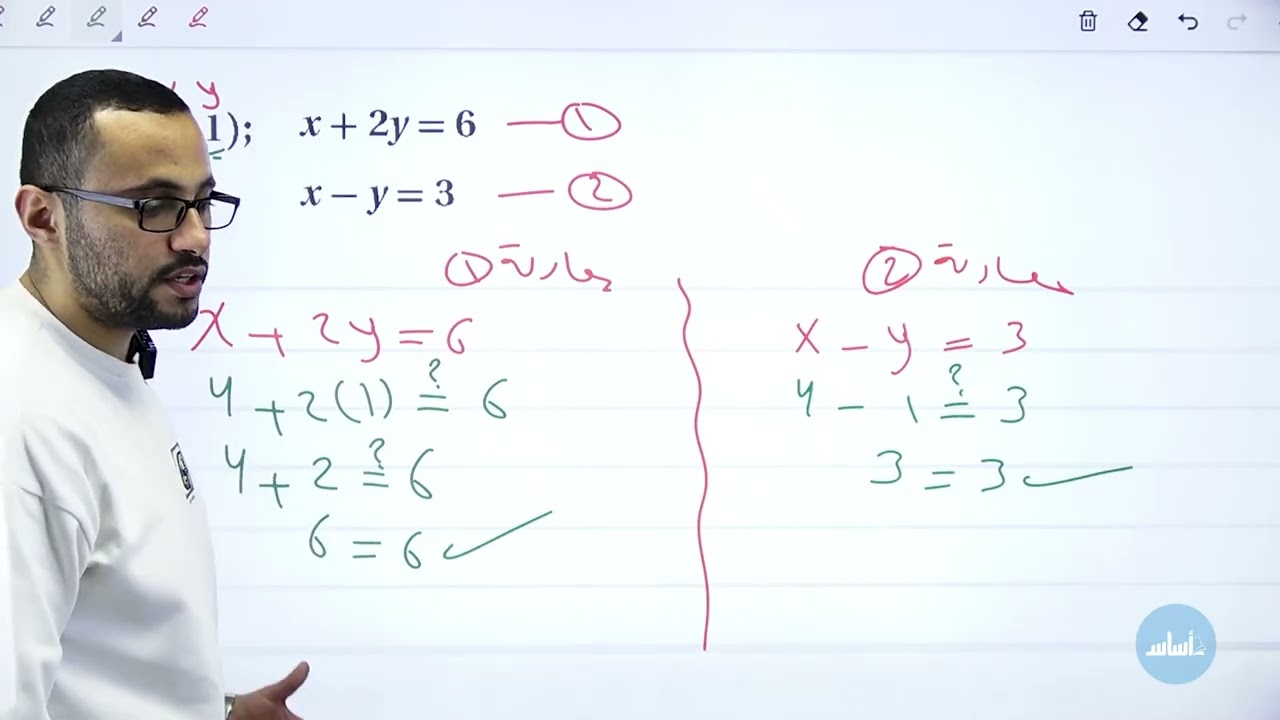 y
1); x + 2y = 6 — ①
x − y = 3 — ②
معادلة ①
x + 2y = 6
4 + 2(1) ≟ 6
4 + 2 ≟ 6
6 = 6 ✓
معادلة ②
x − y = 3
4 − 1 ≟ 3
3 = 3 ✓
أساس